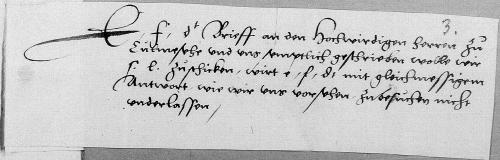 3.
E. f. dt Brieff an den Hochwirdigen herren zu
Culmesehe und uns semptlich geschrieben wolle wir
f. l. zuschicken, wirt e. f. dt mit gleichmessigem
Antwort, wie wir uns vorsehen, zubesuchen nicht
underlassen,